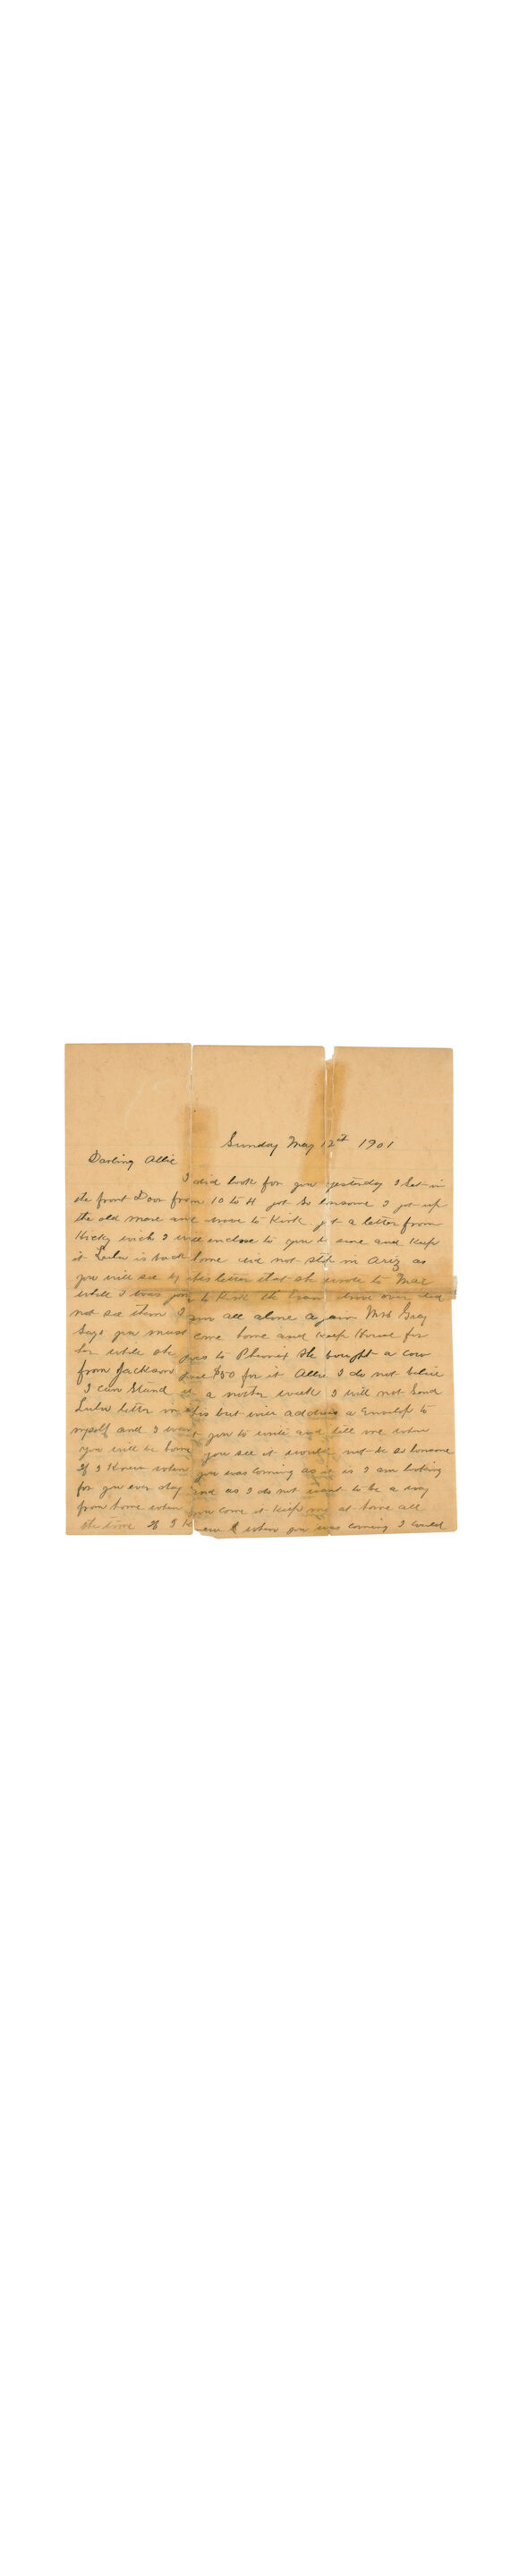 Sunday May 12th 1901
Darling Allie
I did look for you yesterday I set in
the front Door from 10 to 4 got so lonsome I got up
the old mare and drove to Kirk got a letter from
Kicky wich I will inclose to you be sure and Keep
it Lulu is back home did not stop in Ariz as
you will see by this letter that she wrote to Mac
while I was gon to Kirk the drove over did
not see them I am all alone again Mrs Gray
Says you must come home and Keep House for
her while she goes to Phenix She bought a cow
from Jackson gave $50 for it Allie I do not belive
I can Stand it a nother week I will not Send
Lulu letter in this but will address a Envelop to
myself and I want you to write and tell me when
you will be home you see it would not be so lonsome
If I Knew when you was coming as it is I am looking
for you ever day and as I do not want to be a way
from home when you come it Keep me at home all
the time If I Knew when you was coming I would